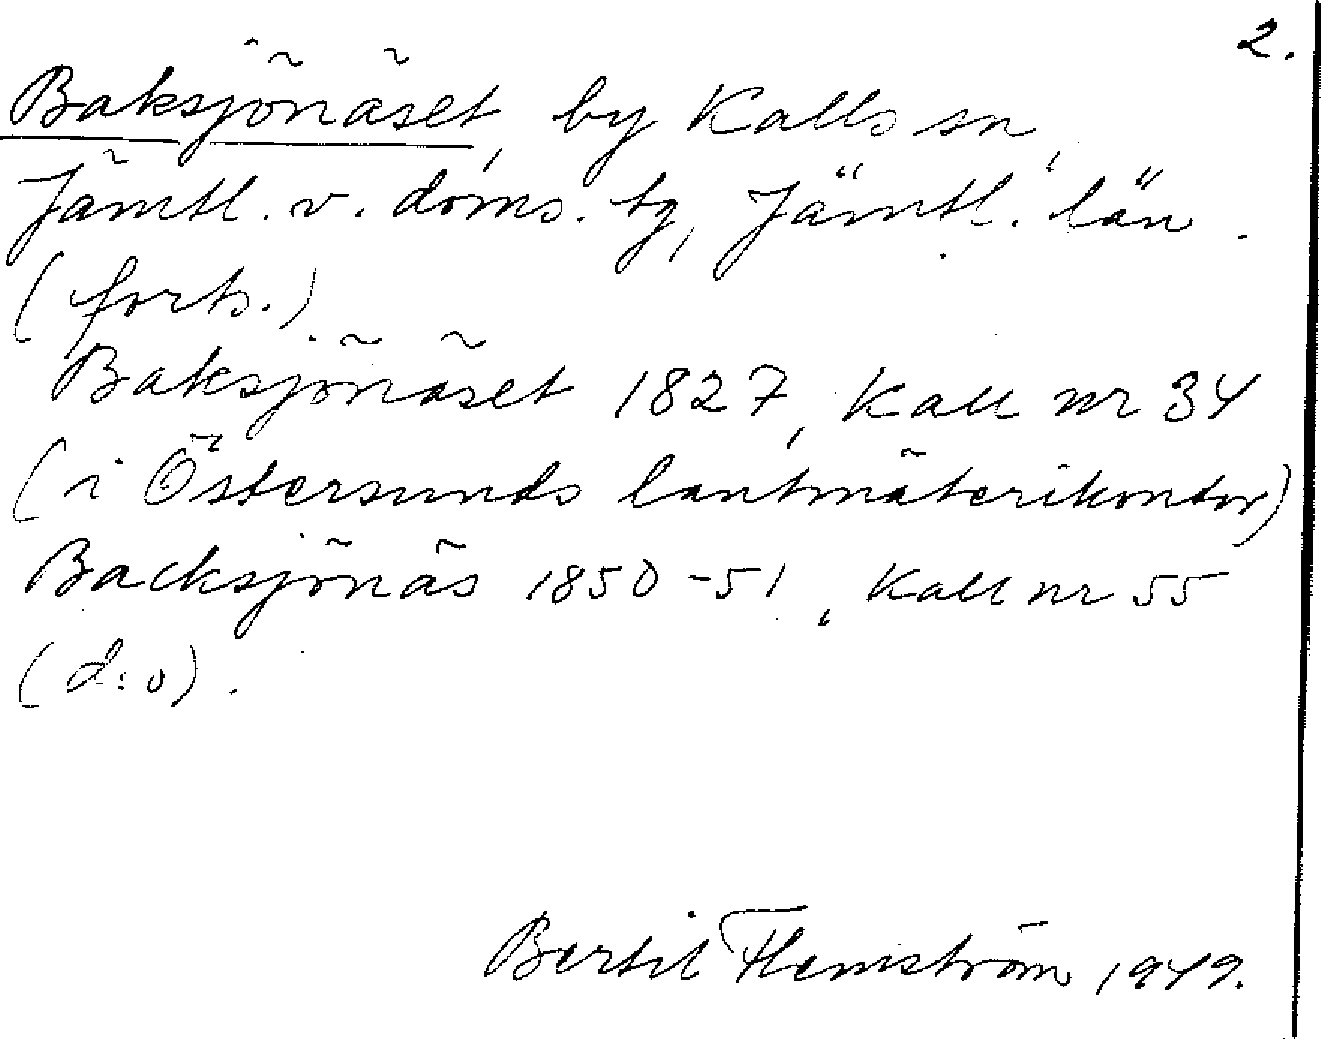 2.
Baksjönäset, by Kalls sn,
Jämtl. v. doms. tg, Jämtl. län.
(forts.)
Baksjönäset 1827, Kall nr 34
(i Östersunds lantmäterikontor)
Backsjönäs 1850-51, Kall nr 55
(d:o).
Bertil Flemström 1949.